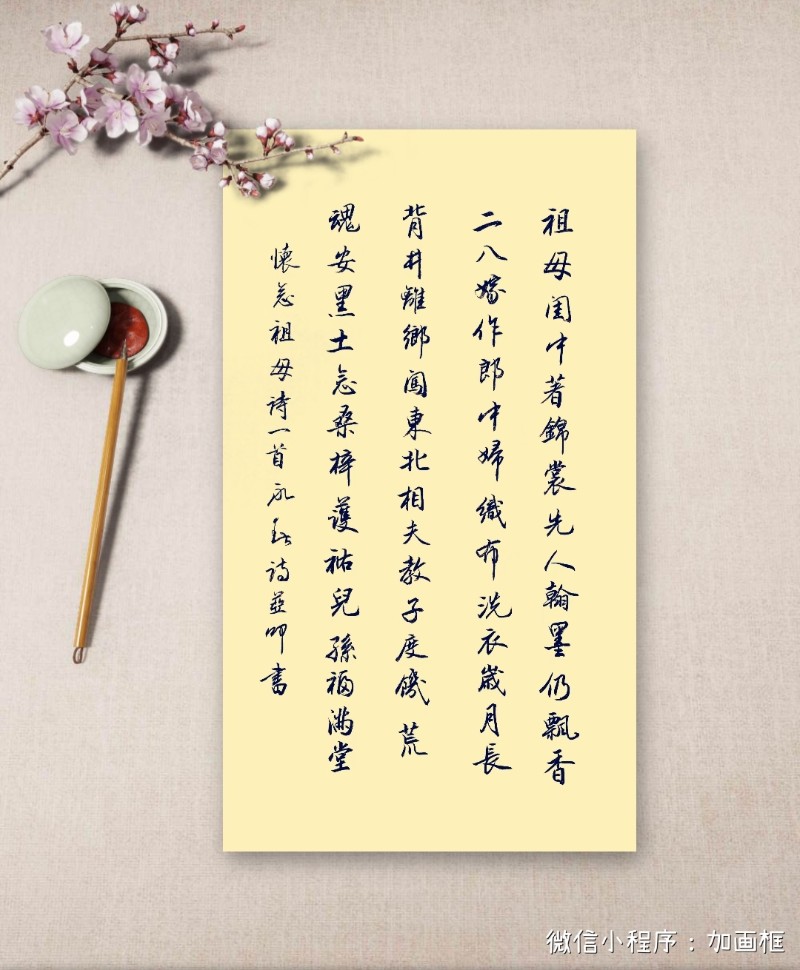 祖母闺中著錦裳先人翰墨仍飄香
二八嫁作郎中婦織布洗衣歲月長
背井離鄉闯東北相夫教子度饑荒
魂安黑土念桑梓護祐兒孫福滿堂
懷念祖母诗一首永诗並叩書
微信小程序：加画框